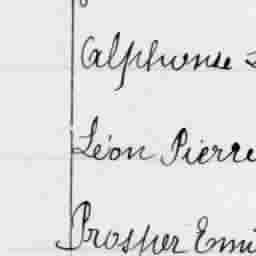 Alphonse
Léon Pierre
Prosper Emi